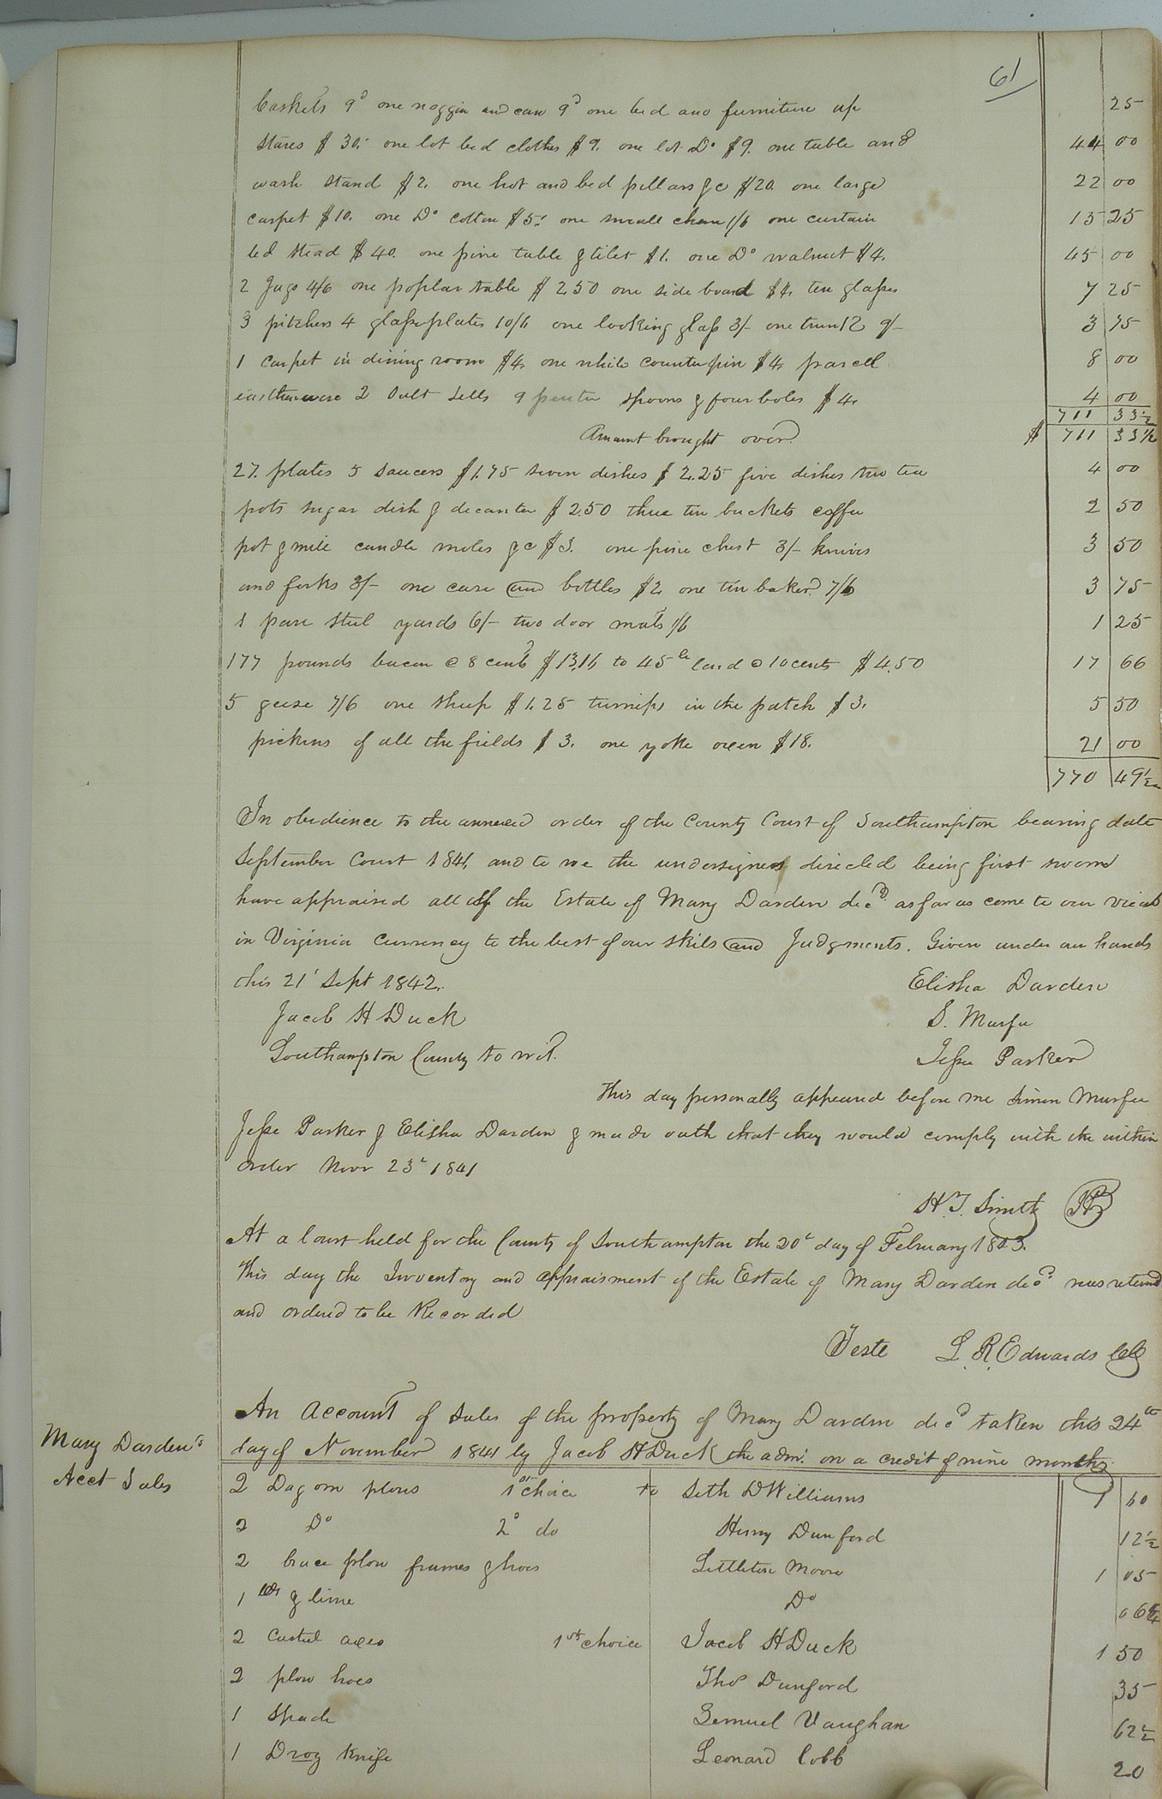 61
baskets 9d one noggin and can 9d one bed and furniture up 25
stares $30. one lot bed clothes $9. one lot Do $9. one table and 44 00
wash stand $2. one hot and bed pillars &c $20. one large 22 00
carpet $10. one Do cotton $5. one small 1/6 one curtain 15 25
bed stead $40. one pine table & tilet $1. one Do walnut $4. 45 00
2 Jugs 4/6 one poplar table $2.50 one side board $4. ten glasses 7 25
3 pitchers 4 glass plates 10/6 one looking glass 3/- one trunk 9/- 3 75
1 carpet in dining room $4. one white counterpin $4. parcell 8 00
earthenware 2 Sells 9 pewter spoons & four boles $4. 4 00
711 33½
Amount brought over $ 711 33½
27. plates 5 saucers $1.75 seven dishes $2.25 five dishes two tea 4 00
pots sugar dish & decanter $2.50 three tin buckets coffee 2 50
pot & mile candle moles &c $3. one pine chest 3/- knives 3 50
and forks 3/- one case and bottles $2. one tin baker 7/6 3 75
1 pare steel yards 6/- two door mats 1/6 1 25
177 pounds bacon @ 8 cents $13.16 to 45 lb lard @ 10 cents $4.50 17 66
5 geese 7/6 one sheep $1.25 turnips in the patch $3. 5 50
pickins of all the fields $3. one yoke oxen $18. 21 00
770 49½
In obedience to the annexed order of the County Court of Southampton bearing date
September Court 1841, and to we the undersigned directed being first sworn
have appraised all of the Estate of Mary Darden decd. as far as come to our view
in Virginia Currency to the best of our skils and Judgments. Given under our hands
this 21t Sept 1842. Elisha Darden
Jacob H Duck S. Murfee
Southampton County to wit. Jesse Parker
This day personally appeared before me Simon Murfee
Jesse Parker & Elisha Darden & made oath that they would comply with the within
order Novr 23d 1841
H. T. Smith JP
At a Court held for the County of Southampton the 20th day of February 1843.
This day the Inventory and appraisment of the Estate of Mary Darden decd. was returnd
and ordered to be Recorded
Teste L. R. Edwards
Mary Darden's
Acct Sales
An Account of Sales of the property of Mary Darden decd. taken this 24th
day of November 1841 by Jacob H Duck the admr. on a credit of nine months
2 Dagom plows 1st choice to Seth D Williams 1 60
2 Do 2d do Henry Dunford 12½
2 brace plow frames & hoes Littleton Moore 1 05
1 & lime Do 06¼
2 Casteel axes 1st choice Jacob H Duck 1 50
2 plow hoes Thos Dunford 35
1 Spade Semuel Vaughan 62½
1 Drog Knife Leonard Cobb 20